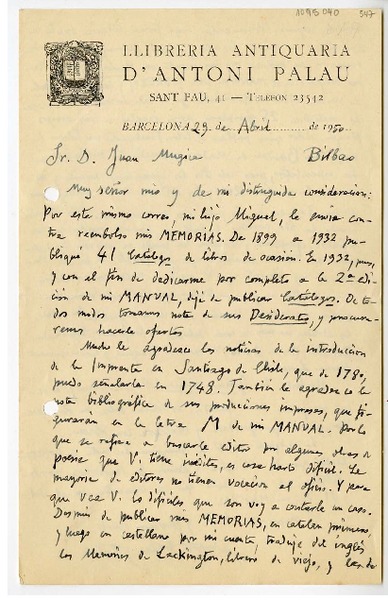 1095040 547
LLIBRERIA ANTIQUARIA
D'ANTONI PALAU
SANT PAU, 41 — TELÈFON 23542
BARCELONA 29 de Abril de 1950
Sr. D. Juan Mugica Bilbao
Muy señor mio y de mi distinguida consideracion:
Por este mismo correo, mi hijo Miguel, le envia con-
tra reembolso mis MEMORIAS. De 1899 a 1932 pu-
bliqué 41 Catálogs de libros de ocasión. En 1932, pues,
y con el fin de dedicarme por completo a la 2ª edi-
ción de mi MANUAL, dejé de publicar Catálogos. De to-
dos modos tomamos nota de sus Desideratas, y procura-
remos hacerle ofertas
Mucho le agradezco las noticias de la introduccion
de la Imprenta en Santiago de Chile, que de 1780,
puedo señalarla en 1748. También le agradezco la
nota bibliográfica de sus producciones impresas, que fi-
gurarán en la letra M de mi MANUAL. Por lo
que se refiere a buscarle editor por algunas obras de
poesia que V. tiene inéditas, es cosa harto difícil. La
mayoria de editores no tienen vocación al oficio. Y para
que vea V. lo difíciles que son voy a contarle un caso.
Despues de publicar mis MEMORIAS, en catalan primero,
y luego en castellano por mi cuenta, traduje del inglés
las Memorias de Lackington, librero de viejo, y las de